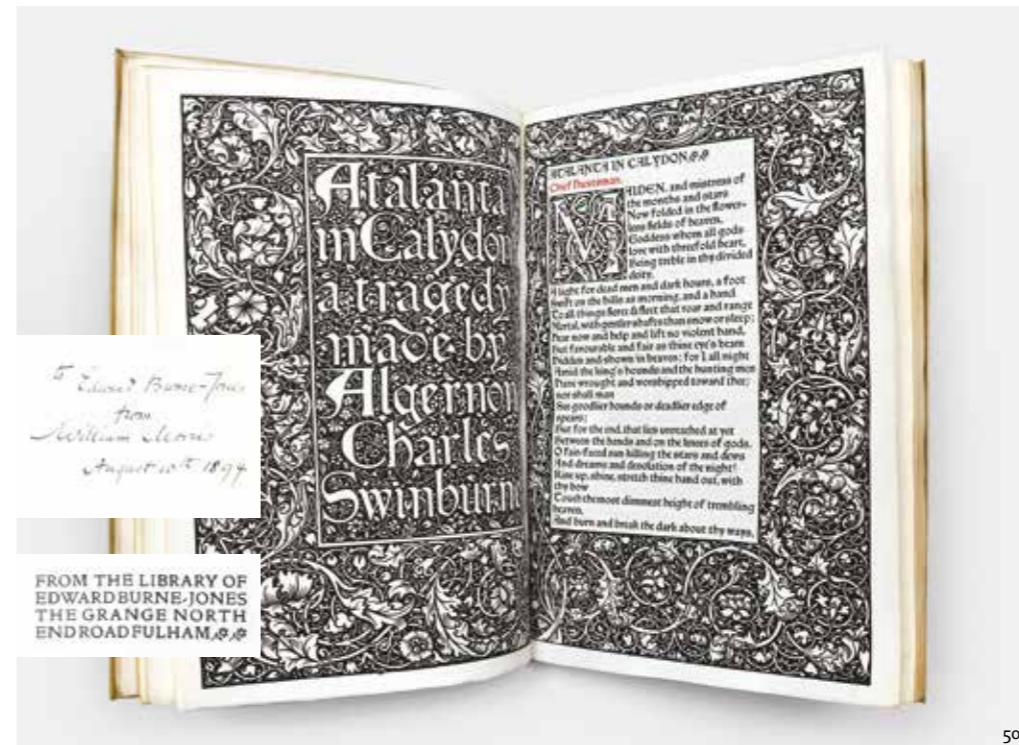 Atalanta
in Calydon
a tragedy
made by
Algernon
Charles
Swinburn
ATALANTA IN CALYDON.
Chief Huntsman.
MAIDEN, and mistress of
the months and stars
Now folded in the flower-
less fields of heaven,
Goddess whom all gods
love with threefold heart,
Being treble in thy divided
deity,
A light for dead men and dark hours, a foot
Swift on the hills as morning, and a hand
To all things fierce & fleet that roar and range
Mortal, with gentler shafts than snow or sleep;
Hear now and help and lift no violent hand,
But favourable and fair as thine eye's beam
Hidden and shown in heaven; for I all night
Amid the king's hounds and the hunting men
Have wrought and worshipped toward thee;
nor shall man
See goodlier hounds or deadlier edge of
spears;
But for the end, that lies unreached at yet
Between the hands and on the knees of gods.
O fair-faced sun killing the stars and dews
And dreams and desolation of the night!
Rise up, shine, stretch thine hand out, with
thy bow
Touch the most dimmest height of trembling
heaven,
And burn and break the dark about thy ways,
to Edward Burne-Jones
from
William Morris
August 10th 1894
FROM THE LIBRARY OF
EDWARD BURNE-JONES
THE GRANGE NORTH
END ROAD FULHAM
50